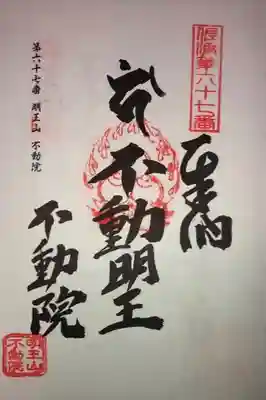 奉納
不動明王
不動院
第六十七番 明王山 不動院
第六十七番
明王山
不動院